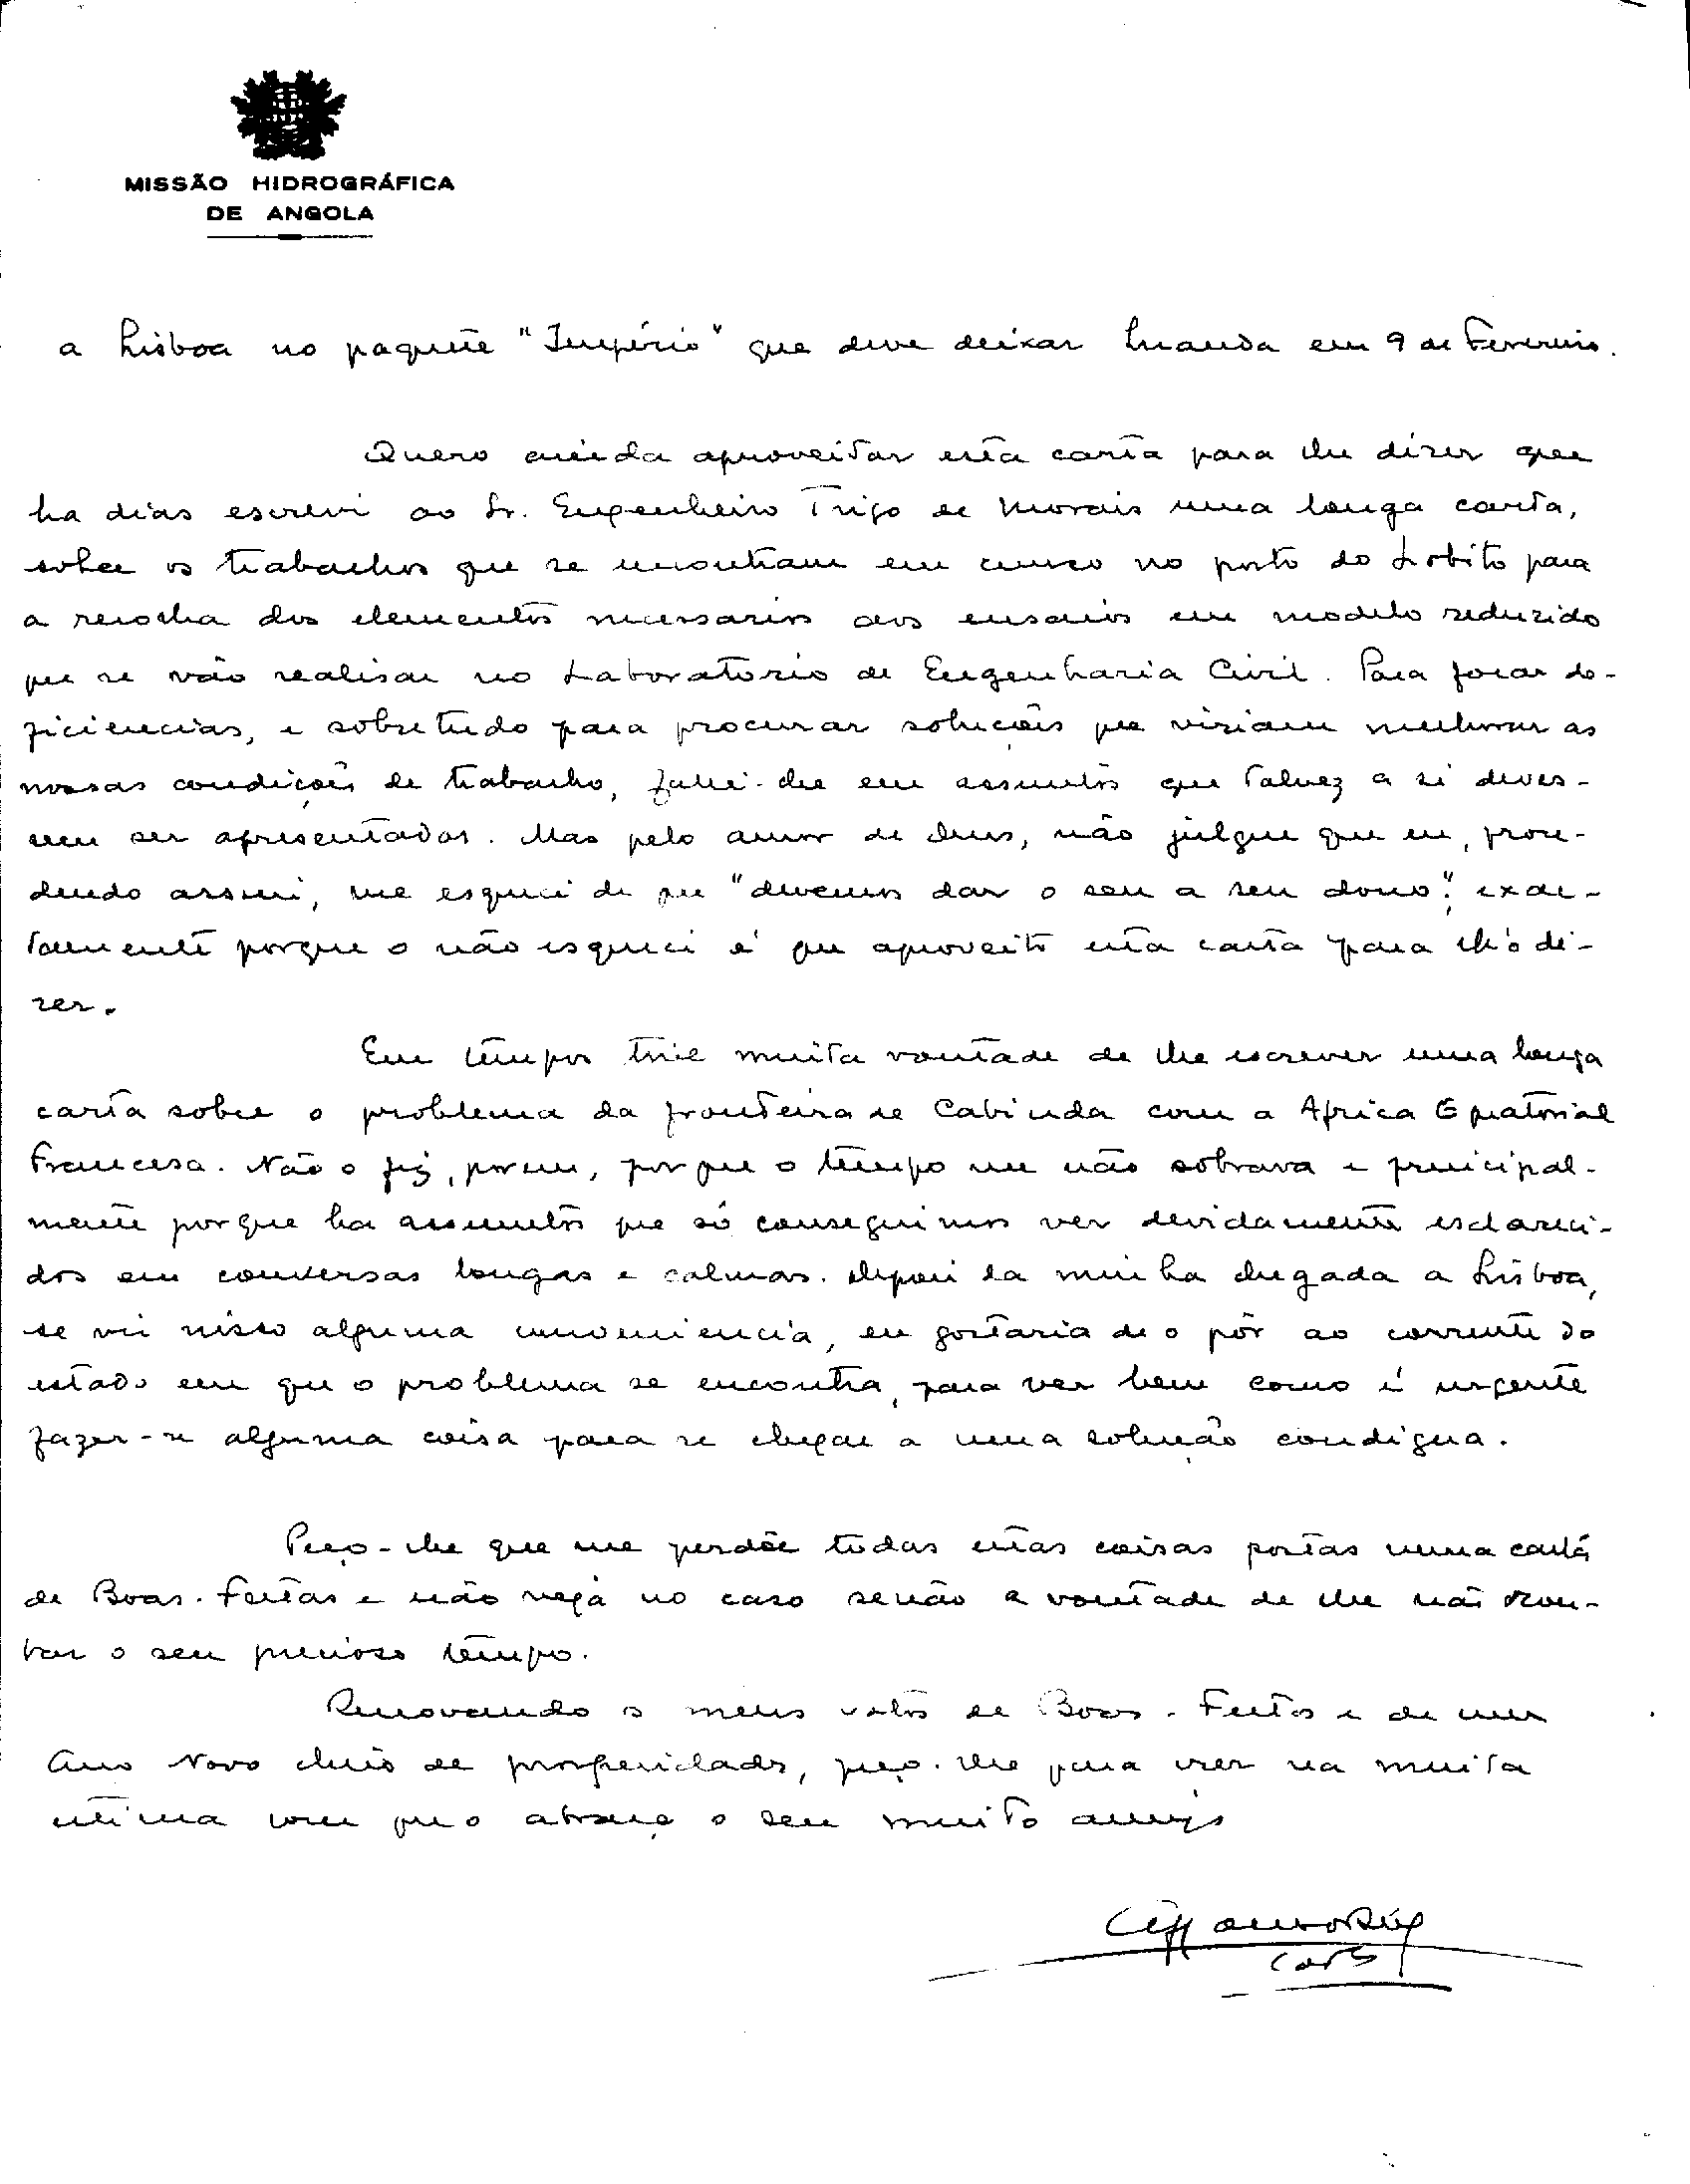 MISSÃO HIDROGRÁFICA
DE ANGOLA
a Lisboa no paquete "Império" que deve deixar Luanda em 9 de Fevereiro.
Quero ainda aproveitar esta carta para lhe dizer que
ha dias escrevi ao Sr. Engenheiro Trigo de Morais uma longa carta,
sobre os trabalhos que se encontram em curso no porto do Lobito para
a recolha dos elementos necessarios aos ensaios em modelo reduzido
que se vão realisar no Laboratorio de Engenharia Civil. Para focar de-
ficiencias, e sobretudo para procurar soluções que viriam melhorar as
nossas condições de trabalho, falei-lhe em assuntos que talvez a si deves-
sem ser apresentados. Mas pelo amor de Deus, não julgue que eu, proce-
dendo assim, me esqueci de que "devemos dar o seu a seu dono"; exac-
tamente porque o não esqueci é que aproveito esta carta para lh'o di-
zer.
Em tempos tive muita vontade de lhe escrever uma longa
carta sobre o problema da fronteira de Cabinda com a Africa Equatorial
Francesa. Não o fiz, porem, porque o tempo me não sobrava e principal-
mente porque ha assuntos que só conseguimos ver devidamente esclareci-
dos em conversas longas e calmas. Depois da minha chegada a Lisboa,
se vir nisso alguma conveniencia, eu gostaria de o pôr ao corrente do
estado em que o problema se encontra, para ver bem como é urgente
fazer-se alguma coisa para se chegar a uma solução condigna.
Peço-lhe que me perdôe todas estas coisas postas numa carta
de Boas-Festas e não veja no caso senão a vontade de lhe não rou-
bar o seu precioso tempo.
Renovando os meus votos de Boas-Festas e de um
Ano Novo cheio de prosperidades, peço-lhe para crer na muita
estima com que o abraça o seu muito amigo